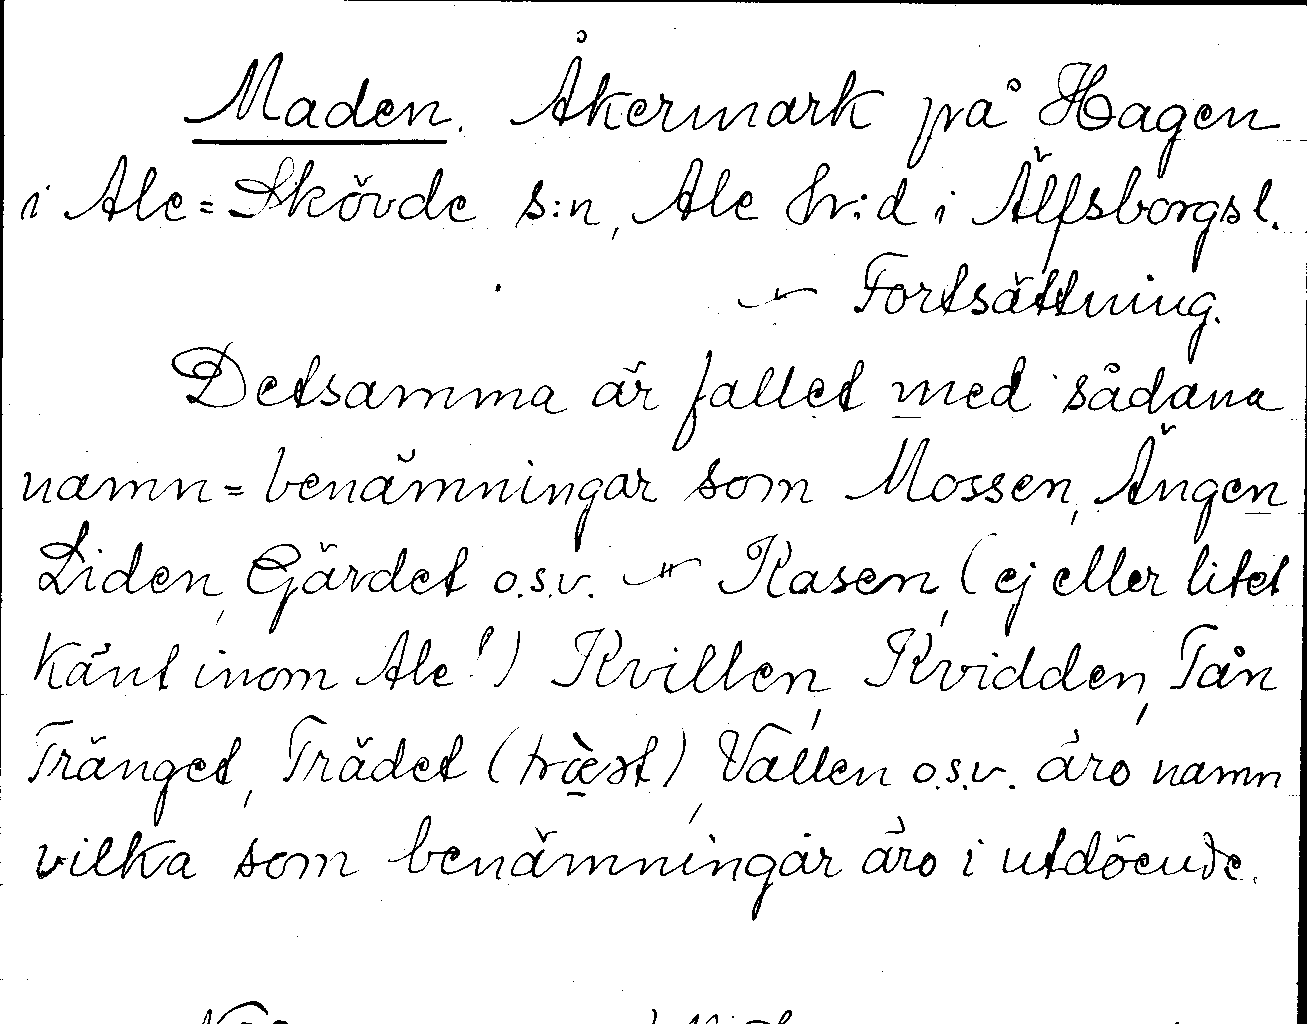 Maden. Åkermark på Hagen
i Ale=Skövde s:n, Ale hr:d i Älfsborgs l.
— Fortsättning.
Detsamma är fallet med sådana
namn=benämningar som Mossen, Ängen
Liden, Gärdet o.s.v. — Kasen, (ej eller litet
känt inom Ale!) Kvillen, Kvidden, Tån
Tränget, Trädet (træst), Vallen o.s.v. äro namn
vilka som benämningar äro i utdöende.